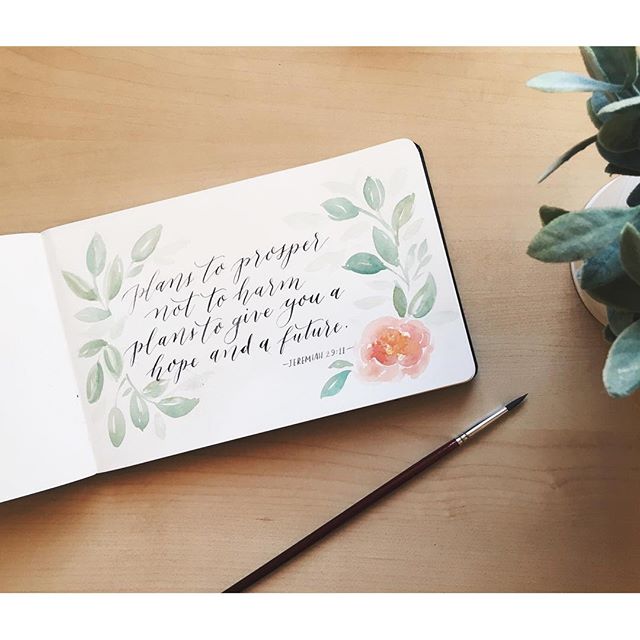 plans to prosper
not to harm
plans to give you a
hope and a future.
-JEREMIAH 29:11-